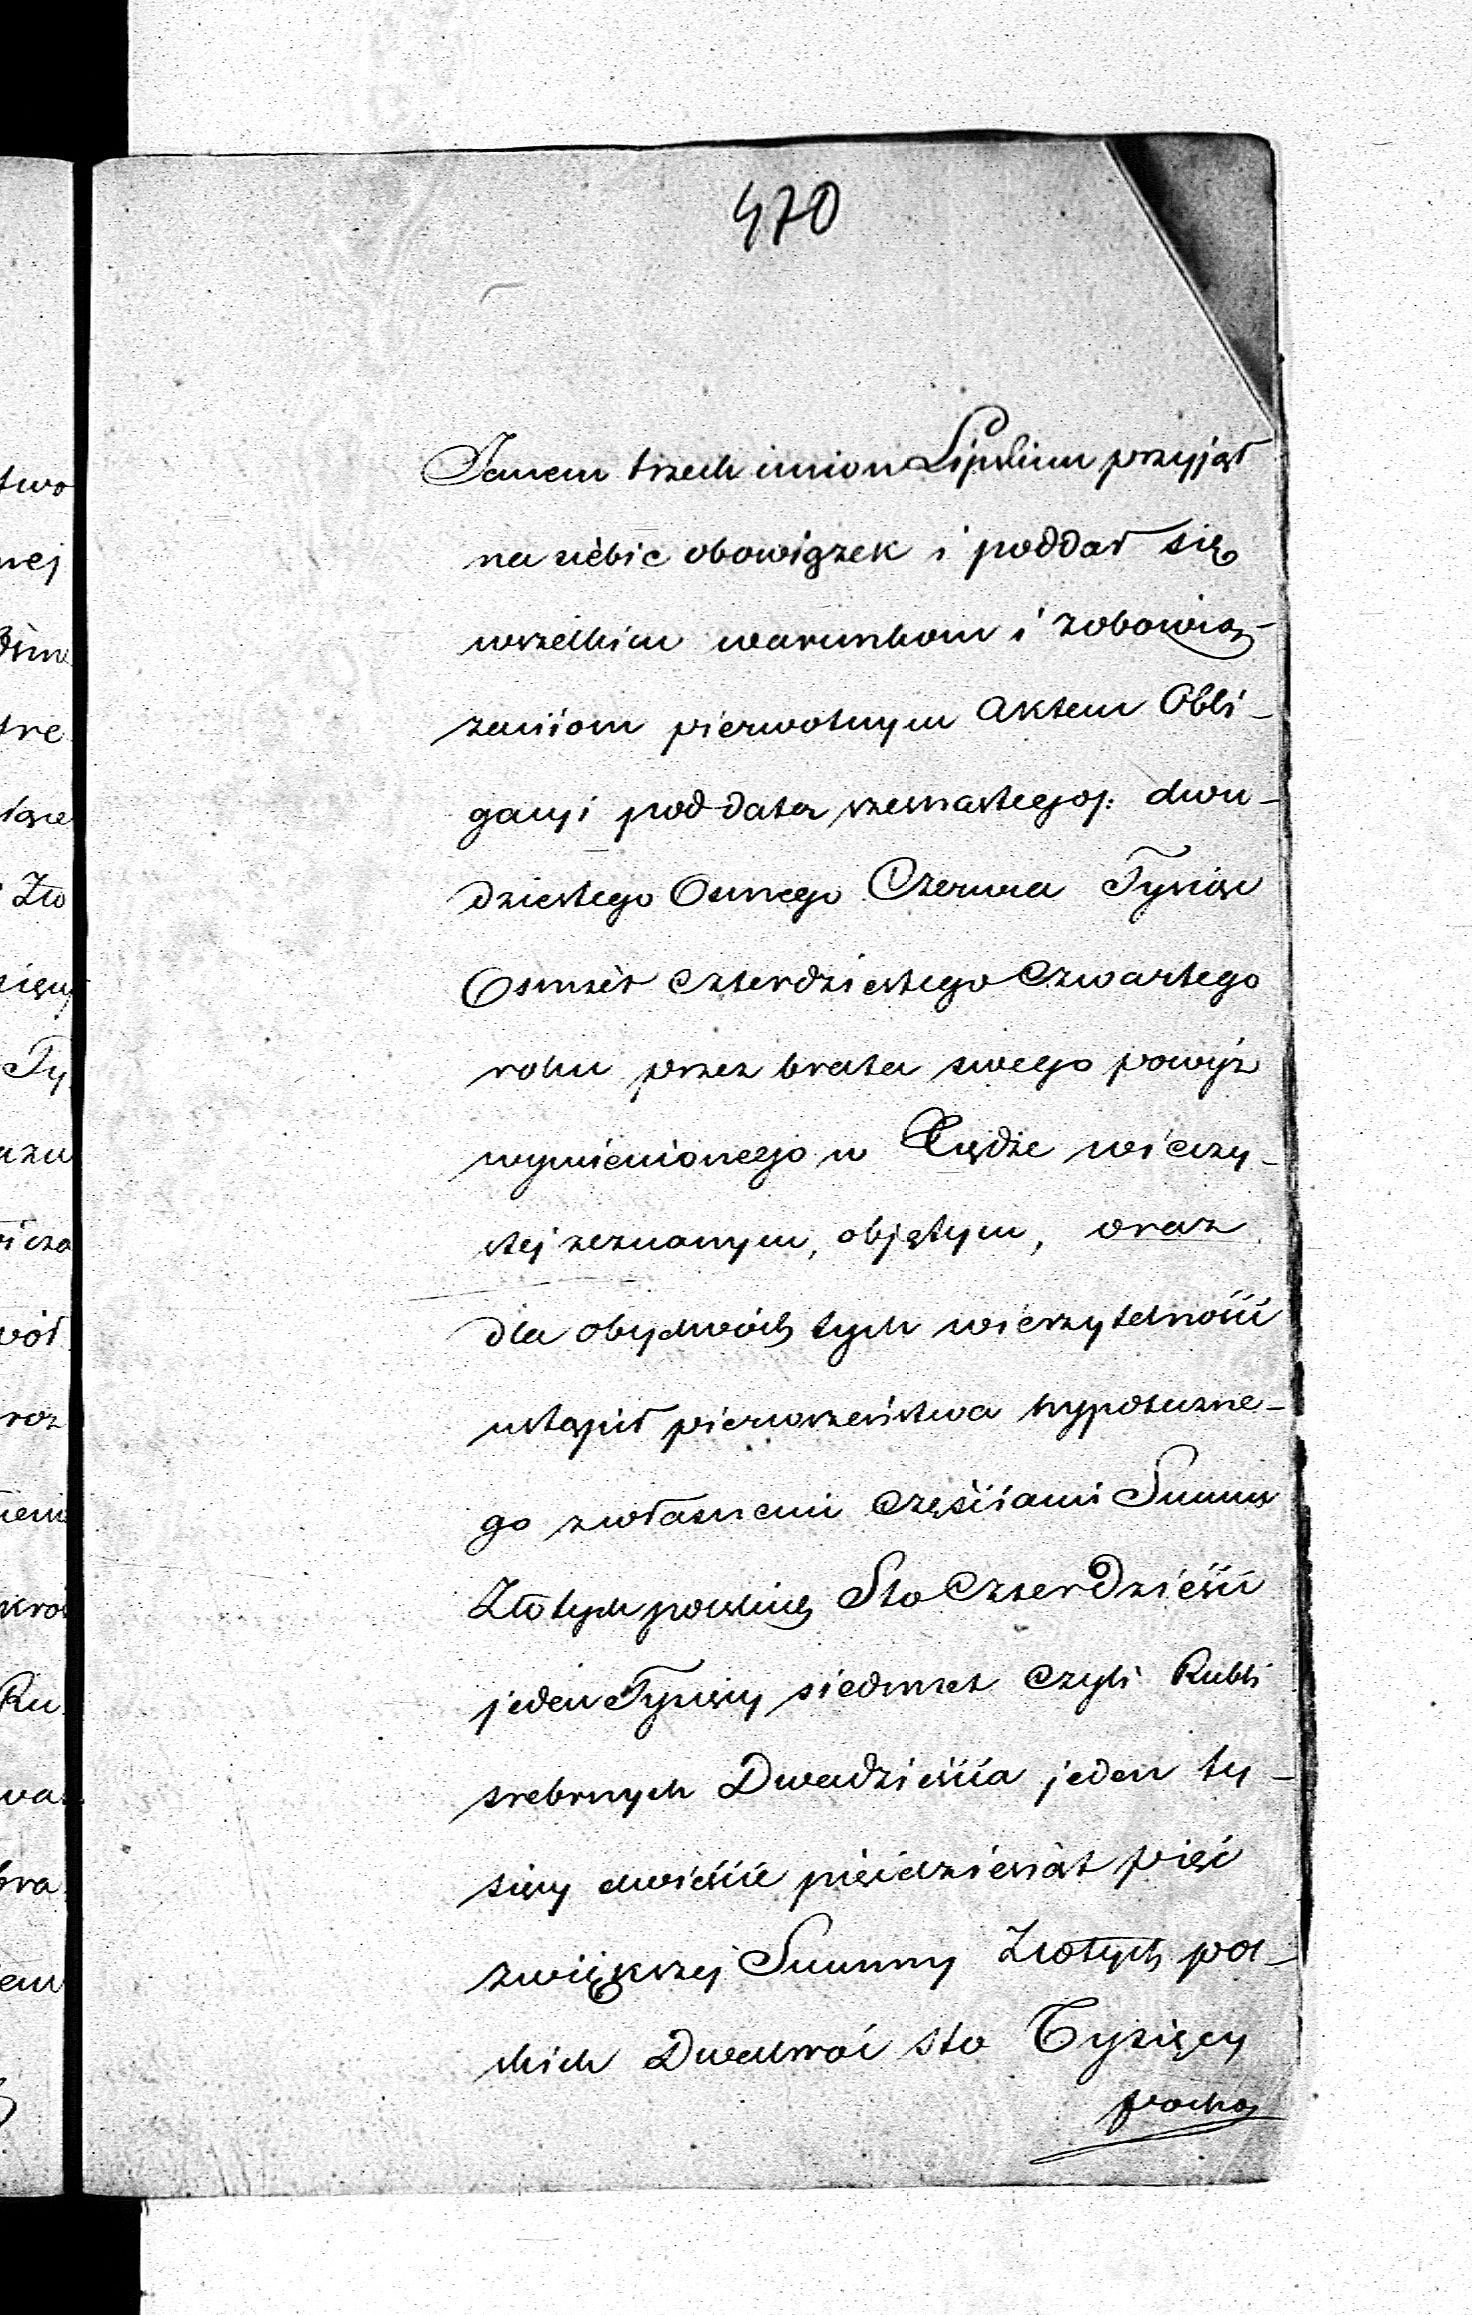 470
Janem trzech imion Lipskim przyjął
na siebie obowiązek i poddał się
wszelkim warunkom i zobowią-
zaniiom pierwotnym aktem Obli-
gacyi pod datą szesnastego/: dwu-
dziestego Osmego Czerwca Tysiąc
Osmset Czterdziestego Czwartego
roku przez brata swego powyż
wymienionego w Księdze wieczy-
stej zeznanym, objętym, oraz
dla obydwóch tych wierzytelności
ustąpił pierwszeństwa hypoteczne-
go zwłasnemi Częściami Summy
Złotych polskich Sto Czterdzieści
jeden Tysięcy siedmset Czyli Rubli
srebrnych Dwadzieścia jeden ty-
sięcy dwieście pięćdziesiąt pięć
zwiększej Summy Złotych pol-
skich Dwakroć sto Tysięcy
pocho